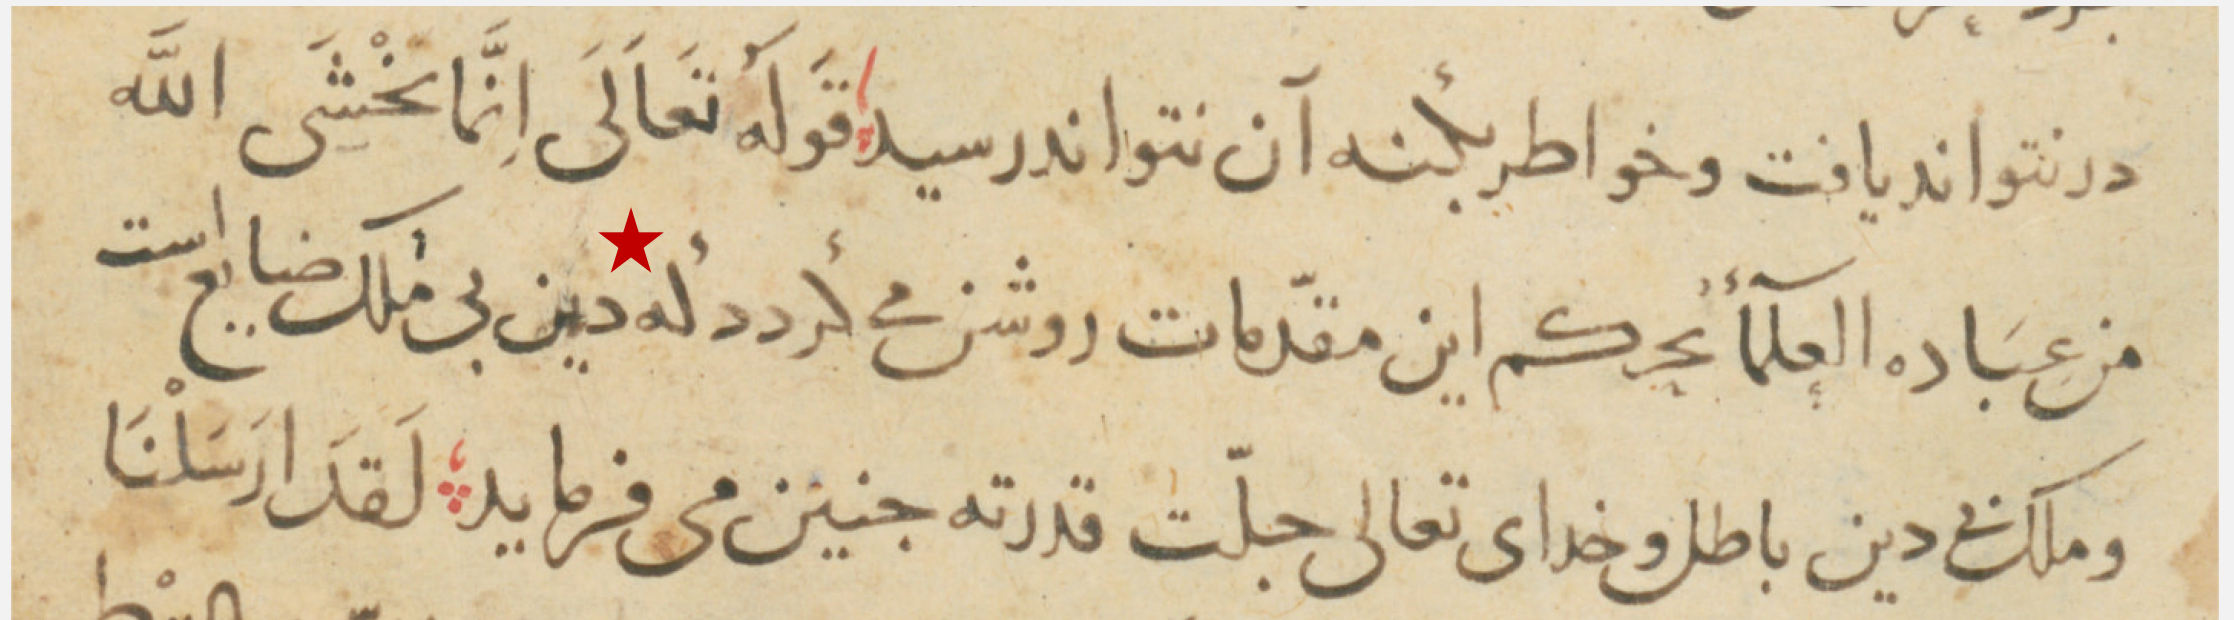 در نتواند یافت وخواطر بکنه آن نتواند رسید قَوله تَعَالَی اِنَّما یَخْشَی اللَّه
من عِبَاده العلمآء بحکم این مقدّمات روشن می کردد که دین بی ملک ضایع است
وملک بی دین باطل وخدای تعالی جلّت قدرته جنین می فرماید لَقَد ارَسَلْنَا